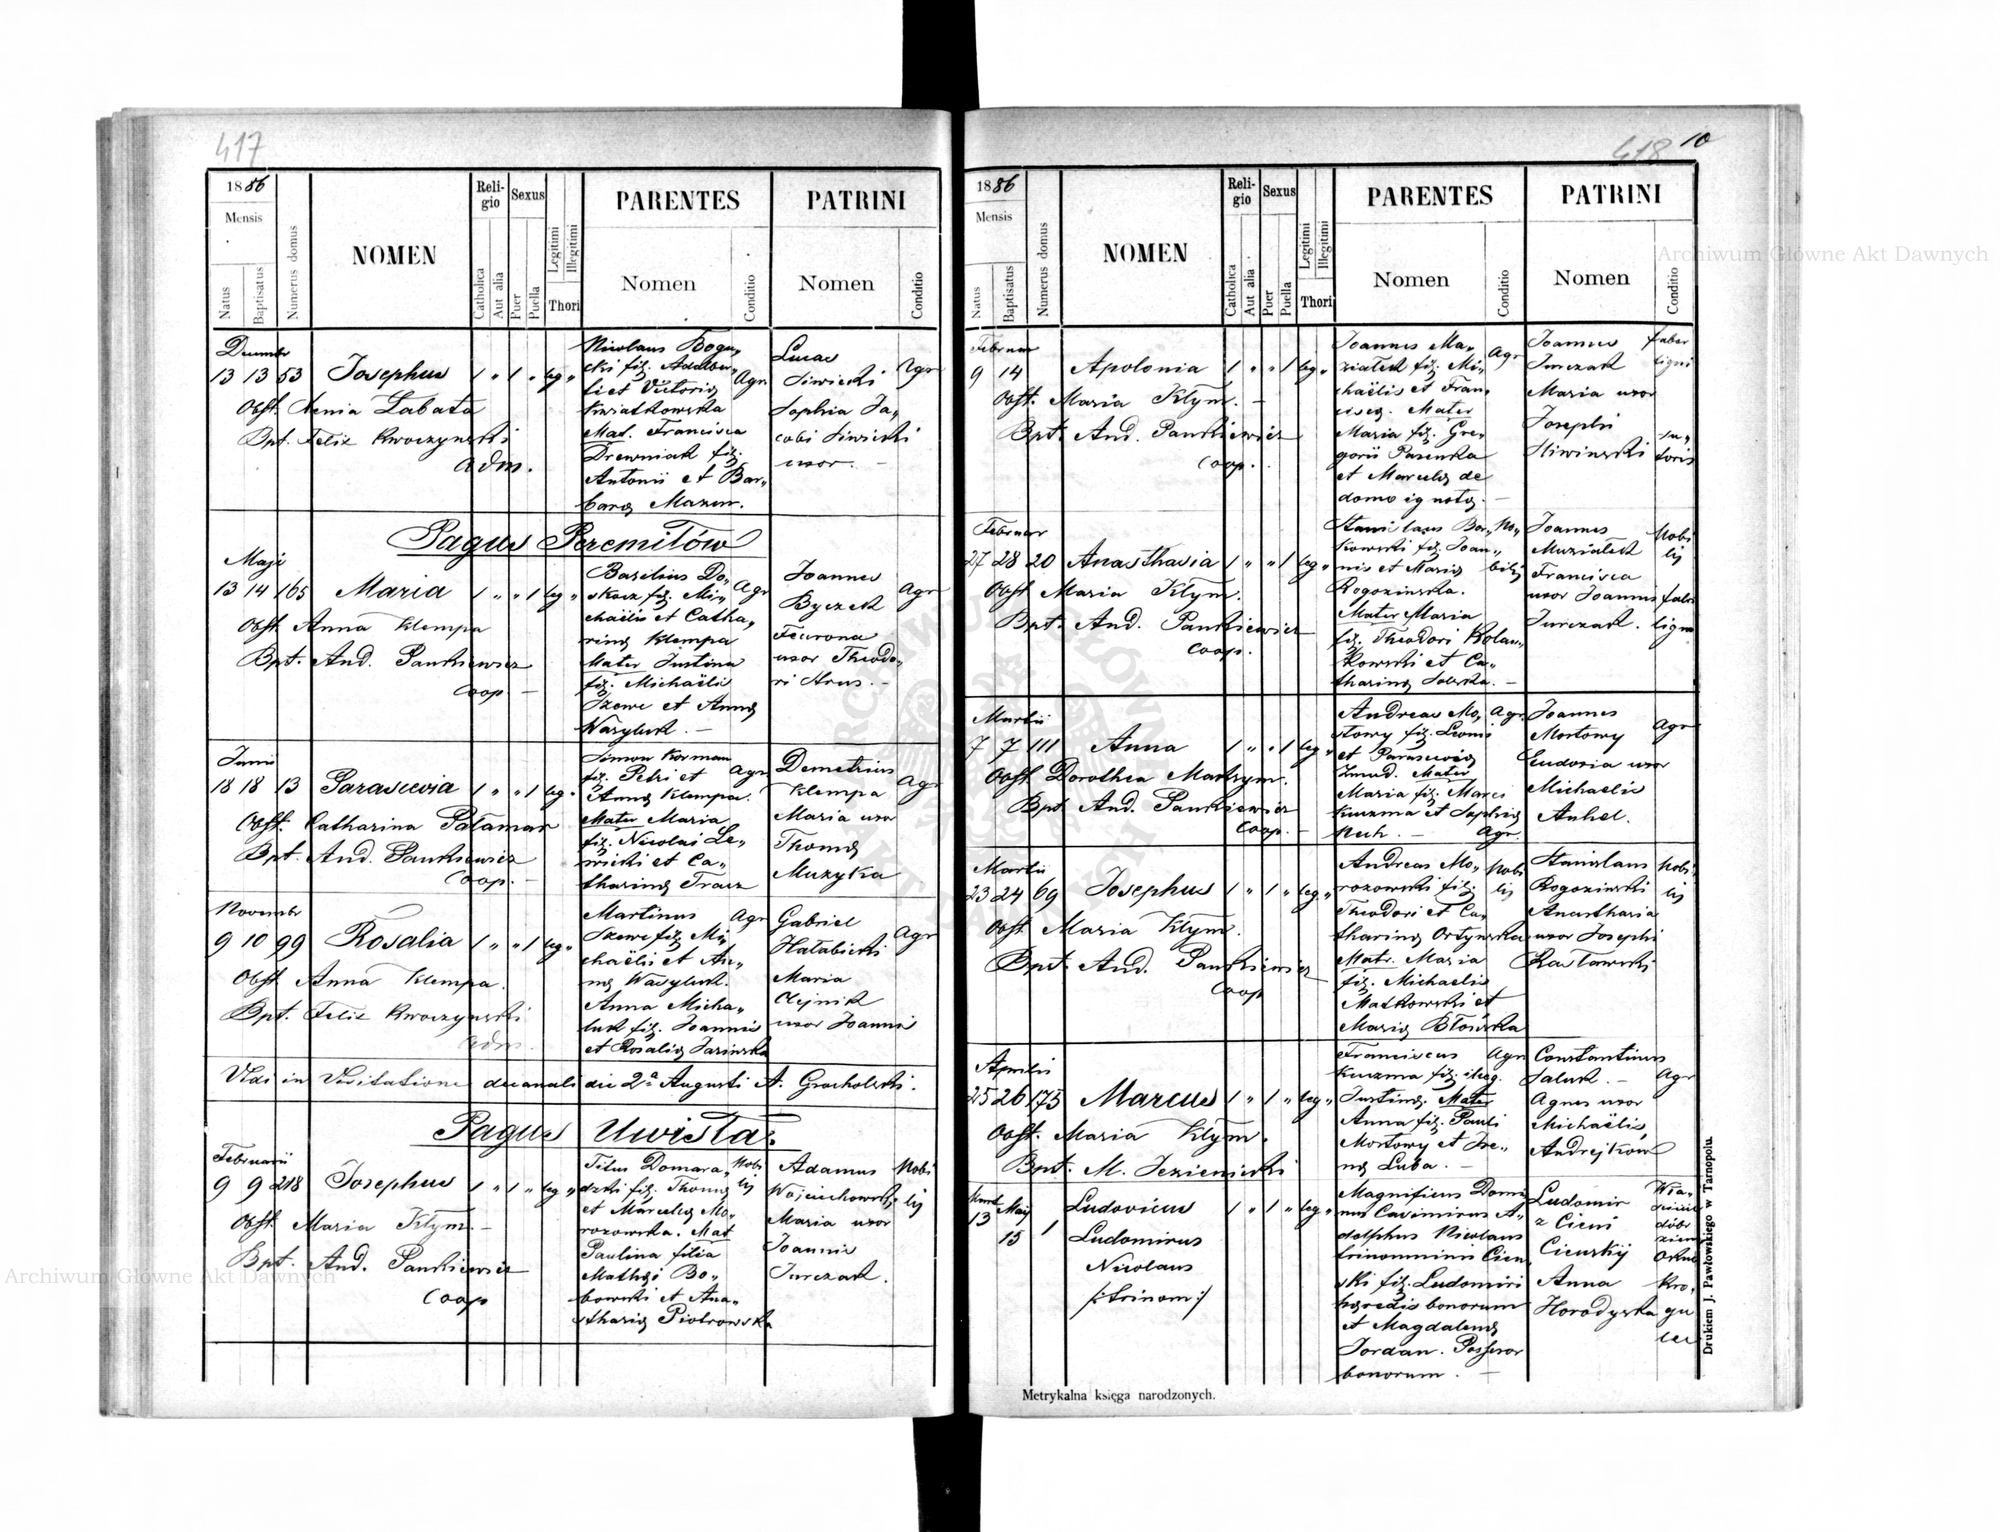 417
1886
Mensis
Natus
Baptisatus
Numerus domus
NOMEN
Religio
Catholica
Aut alia
Sexus
Puer
Puella
Legitimi
Illegitimi
Thori
PARENTES
Nomen
Conditio
PATRINI
Nomen
Conditio
Decembr
13 13 53 Josephus 1 " 1 " leg "
Obst. Xenia Labata
Bpt. Felix Kwoczynski
adm.
Nicolaus Bogu„
cki fil. Adalber„
ti et Victoriæ
Kwiatkowska
Mat. Francisca
Drewniak fil.
Antonii et Bar„
baræ Mazur.
Agr
Lucas
Siwicki
Sophia Ja„
cobi Siwicki
uxor. —
Agr
Pagus Peremiłów
Maji
13 14 165 Maria 1 " " 1 leg "
Obst. Anna Klempa
Bpt. And. Pankiewicz
Coop. —
Basilius Do„
skocz fil. Mi„
chaëlis et Catha„
rinæ Klempa
Mater Justina
fil. Michaëlis
et Annæ
Wasyluk. —
Agr
Joannes
Byczek
uxor Theodo„
ri
Agr
Junii
18 18 13 Parascevia 1 " " 1 leg "
Obst. Catharina Palamar
Bpt. And. Pankiewicz
Coop. —
Simon Korman
fil. Petri et
Annæ Klempa.
Mater Maria
fil. Nicolai Le„
wicki et Ca„
tharinæ Tracz
Agr
Demetrius
Klempa
Maria uxor
Thomæ
Muzyka
Agr
Novembr
9 10 99 Rosalia 1 " " 1 leg "
Obst. Anna Klempa.
Bpt. Felix Kwoczynski
adm.
Martinus
fil. Mi„
chaëlis et An„
næ Wasyluk.
Anna Micha„
luk fil. Joannis
et Rosaliæ Jasinska
Agr
Gabriel
Hałabicki
Maria
Olejnik
uxor Joannis
Agr
Vidi in Visitatione decanali die 2ª Augusti A. Grocholski.
Pagus Uwisła.
Februarii
9 9 218 Josephus 1 " 1 " leg "
Obst. Maria Kłym. —
Bpt. And. Pankiewicz
Coop
Titus Domara„
dzki fil. Thomæ
et Marcelæ Mo„
rozowska. Mat
Paulina filia
Mathæi Bo„
bowski et Ana„
sthasiæ Piotrowska
Nobi
lis
Adamus
Wojciechowski
Maria uxor
Joannis
Jurczak.
Nobi
lis
418 10
1886
Mensis
Natus
Baptisatus
Numerus domus
NOMEN
Religio
Catholica
Aut alia
Sexus
Puer
Puella
Legitimi
Illegitimi
Thori
PARENTES
Nomen
Conditio
PATRINI
Nomen
Conditio
Februar
9 14 Apolonia 1 " " 1 leg "
Obst. Maria Kłym. —
Bpt. And. Pankiewicz
Coop.
Joannes Ma„
ziatek fil. Mi„
chaëlis et Fran„
ciscæ. Mater
Maria fil. Gre„
gorii Pasenka
et Marcelæ de
domo ignotæ. —
Agr
Joannes
Jurczak
Maria uxor
Josephi
Sliwinski
faber
ligni
su„
toris
Februar
27 28 20 Anasthasia 1 " " 1 leg "
Obst Maria Kłym.
Bpt. And. Pankiewicz
Coop.
Stanislaus Bor„
kowski fil. Joan„
nis et Mariæ
Rogozinska.
Mater Maria
fil. Theodori Kolan„
kowski et Ca„
tharinæ —
No„
bilis
Joannes
Muziatek
Francisca
uxor Joannis
Jurczak.
Nobi
lis
fabri
lignar
Martii
7 7 111 Anna 1 " " 1 leg "
Obst Dorothea Martzym.
Bpt And. Pankiewicz
Coop. —
Andreas Mo„
stowy fil. Leonis
et Parasceviæ
Zmud. Mater
Maria fil. Marci
Kuczma et Sophiæ
Agr.
Joannes
Mostowy
Eudoxia uxor
Michaëlis
Anhel.
Agr
Martii
23 24 69 Josephus 1 " 1 " leg "
Obst Maria Kłym.
Bpt. And. Pankiewicz
Coop
Andreas Mo„
rozowski fil.
Theodori et Ca„
tharinæ Ortynska
Matr. Maria
fil. Michaëlis
Matkowski et
Mariæ Błońska
Nobi
lis
Stanislaus
Rogozinski
Anasthasia
uxor Josephi
Racławski
Nobi
lis
Aprilis
25 26 175 Marcus 1 " 1 " leg "
Obst. Maria Kłym.
Bpt. M. Jezieniecki
Franciscus
Kuczma fil. illeg.
Justinæ. Mater
Anna fil. Pauli
Mostowy et Ire„
næ Luba. —
Agr
Constantinus
Saluk. —
Agnes uxor
Michaëlis
Andrejków
Agr
Mart Maji
13 15 1 Ludovicus 1 " 1 " leg "
Ludomirus
Nicolaus
/:trinom:/
Magnificus Domi
nus Casimirus A„
dolphus Nicolaus
trinominis Cien
ski fil. Ludomiri
hæredis bonorum
et Magdalenæ
Jordan. Possesor
bonorum. —
Ludomir
z Cieni
Cienskij
Anna
Horodyska
Wła„
ściciel
dóbr
ziem
Okno
Kro„
gu
lec
Metrykalna księga narodzonych.
Drukiem J. Pawłowskiego w Tarnopolu.
Archiwum Główne Akt Dawnych
Archiwum Główne Akt Dawnych
ARCHIWUM GŁÓWNE AKT DAWNYCH